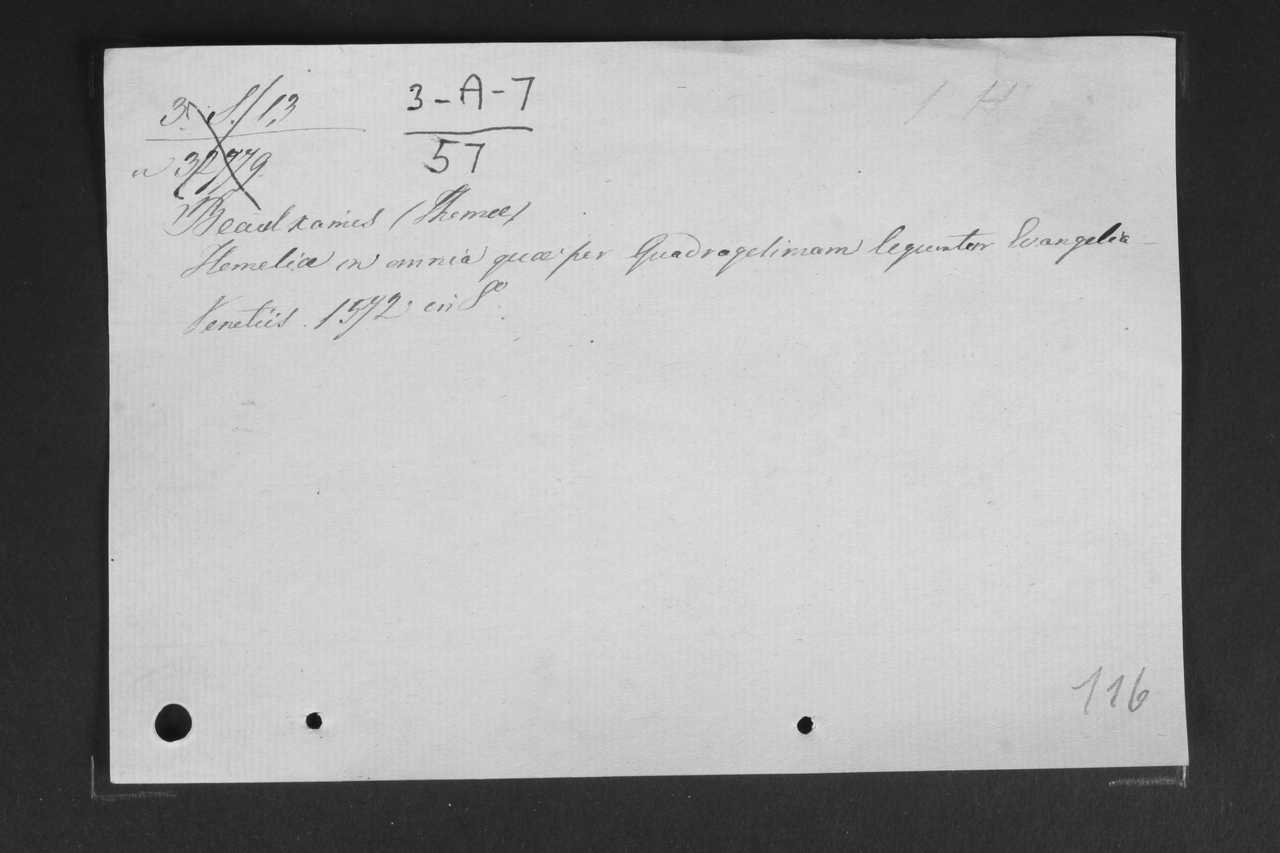 3. S./13
3-A-7
57
n 32779
Beaulxamis (Thomæ)
Homeliæ in omnia quæ per Quadragesimam leguntur Evangelia
Venetiis. 1572. en 8º.
116